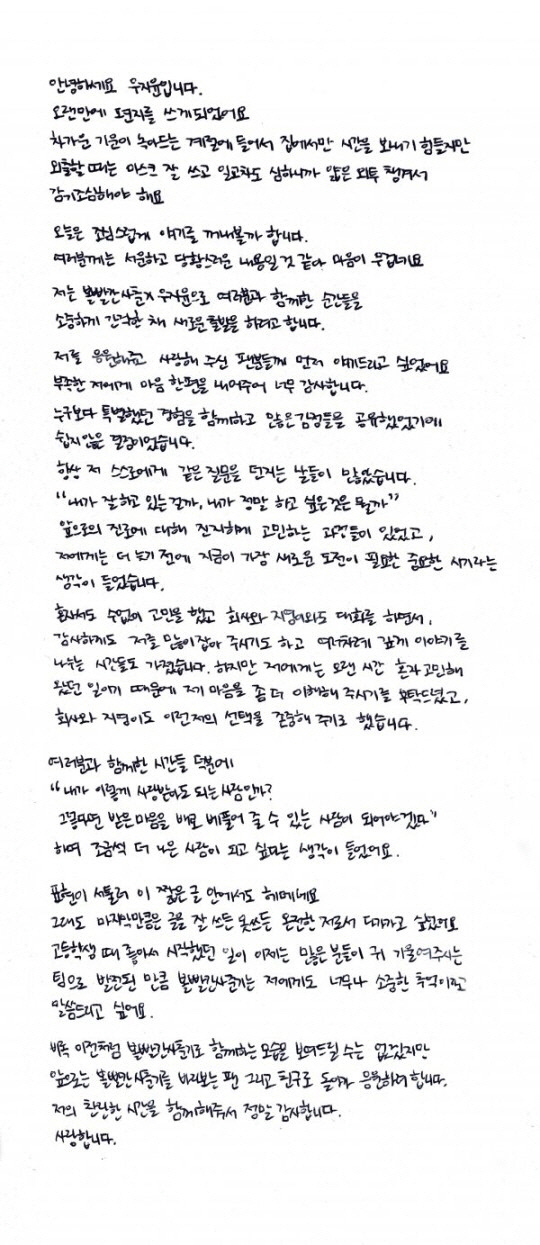 안녕하세요 우지윤입니다.
오랜만에 편지를 쓰게되었어요
차가운 기운이 녹아드는 계절에 들어서 집에서만 시간을 보내기 힘들지만
외출할 때는 마스크 잘 쓰고 일교차도 심하니까 얇은 외투 챙겨서
감기조심해야 해요
오늘은 조심스럽게 얘기를 꺼내볼까 합니다.
여러분께는 서운하고 당황스러운 내용일 것 같아 마음이 무겁네요
저는 볼빨간사춘기 우지윤으로 여러분과 함께한 순간들을
소중하게 간직한 채 새로운 출발을 하려고 합니다.
저를 응원해주고 사랑해 주신 팬분들께 먼저 얘기드리고 싶었어요
부족한 저에게 마음 한편을 내어주어 너무 감사합니다.
누구보다 특별했던 경험을 함께하고 많은 감정들을 공유했었기에
쉽지 않은 결정이었습니다.
항상 저 스스로에게 같은 질문을 던지는 날들이 많았습니다.
"내가 잘 하고 있는 걸까, 내가 정말 하고 싶은 것은 뭘까"
앞으로의 진로에 대해 진지하게 고민하는 과정들이 있었고,
저에게는 더 늦기 전에 지금이 가장 새로운 도전이 필요한 중요한 시기라는
생각이 들었습니다.
혼자서도 수없이 고민을 했고 회사와 지영이와도 대화를 하면서,
감사하게도 저를 많이 잡아 주시기도 하고 여러차례 깊게 이야기를
나누는 시간들도 가졌습니다. 하지만 저에게는 오랜 시간 혼자 고민해
왔던 일이기 때문에 제 마음을 좀 더 이해해 주시기를 부탁드렸고,
회사와 지영이도 이런 저의 선택을 존중해 주기로 했습니다.
여러분과 함께한 시간들 덕분에
"내가 이렇게 사랑받아도 되는 사람인가?
그렇다면 받은 마음을 배로 베풀어 줄 수 있는 사람이 되어야겠다"
하며 조금씩 더 나은 사람이 되고 싶다는 생각이 들었어요.
표현이 서툴러 이 짧은 글 안에서도 헤메네요
그래도 마지막만큼은 글을 잘 쓰든 못쓰든 온전한 저로서 다가가고 싶었어요
고등학생 때 좋아서 시작했던 일이 이제는 많은 분들이 귀 기울여주시는
팀으로 발전된 만큼 볼빨간사춘기는 저에게도 너무나 소중한 추억이라고
말씀드리고 싶어요.
비록 이전처럼 볼빨간사춘기로 함께하는 모습을 보여드릴 수는 없겠지만
앞으로는 볼빨간사춘기를 바라보는 팬 그리고 친구로 돌아가 응원하려 합니다.
저의 찬란한 시간을 함께해주셔서 정말 감사합니다.
사랑합니다.